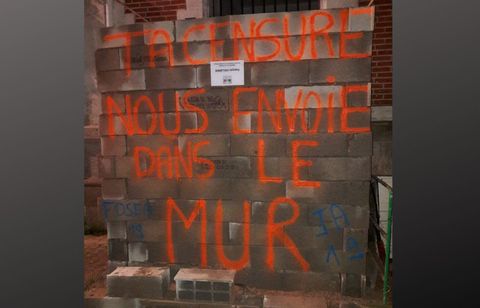 TA CENSURE
NOUS ENVOIE
DANS LE
MUR